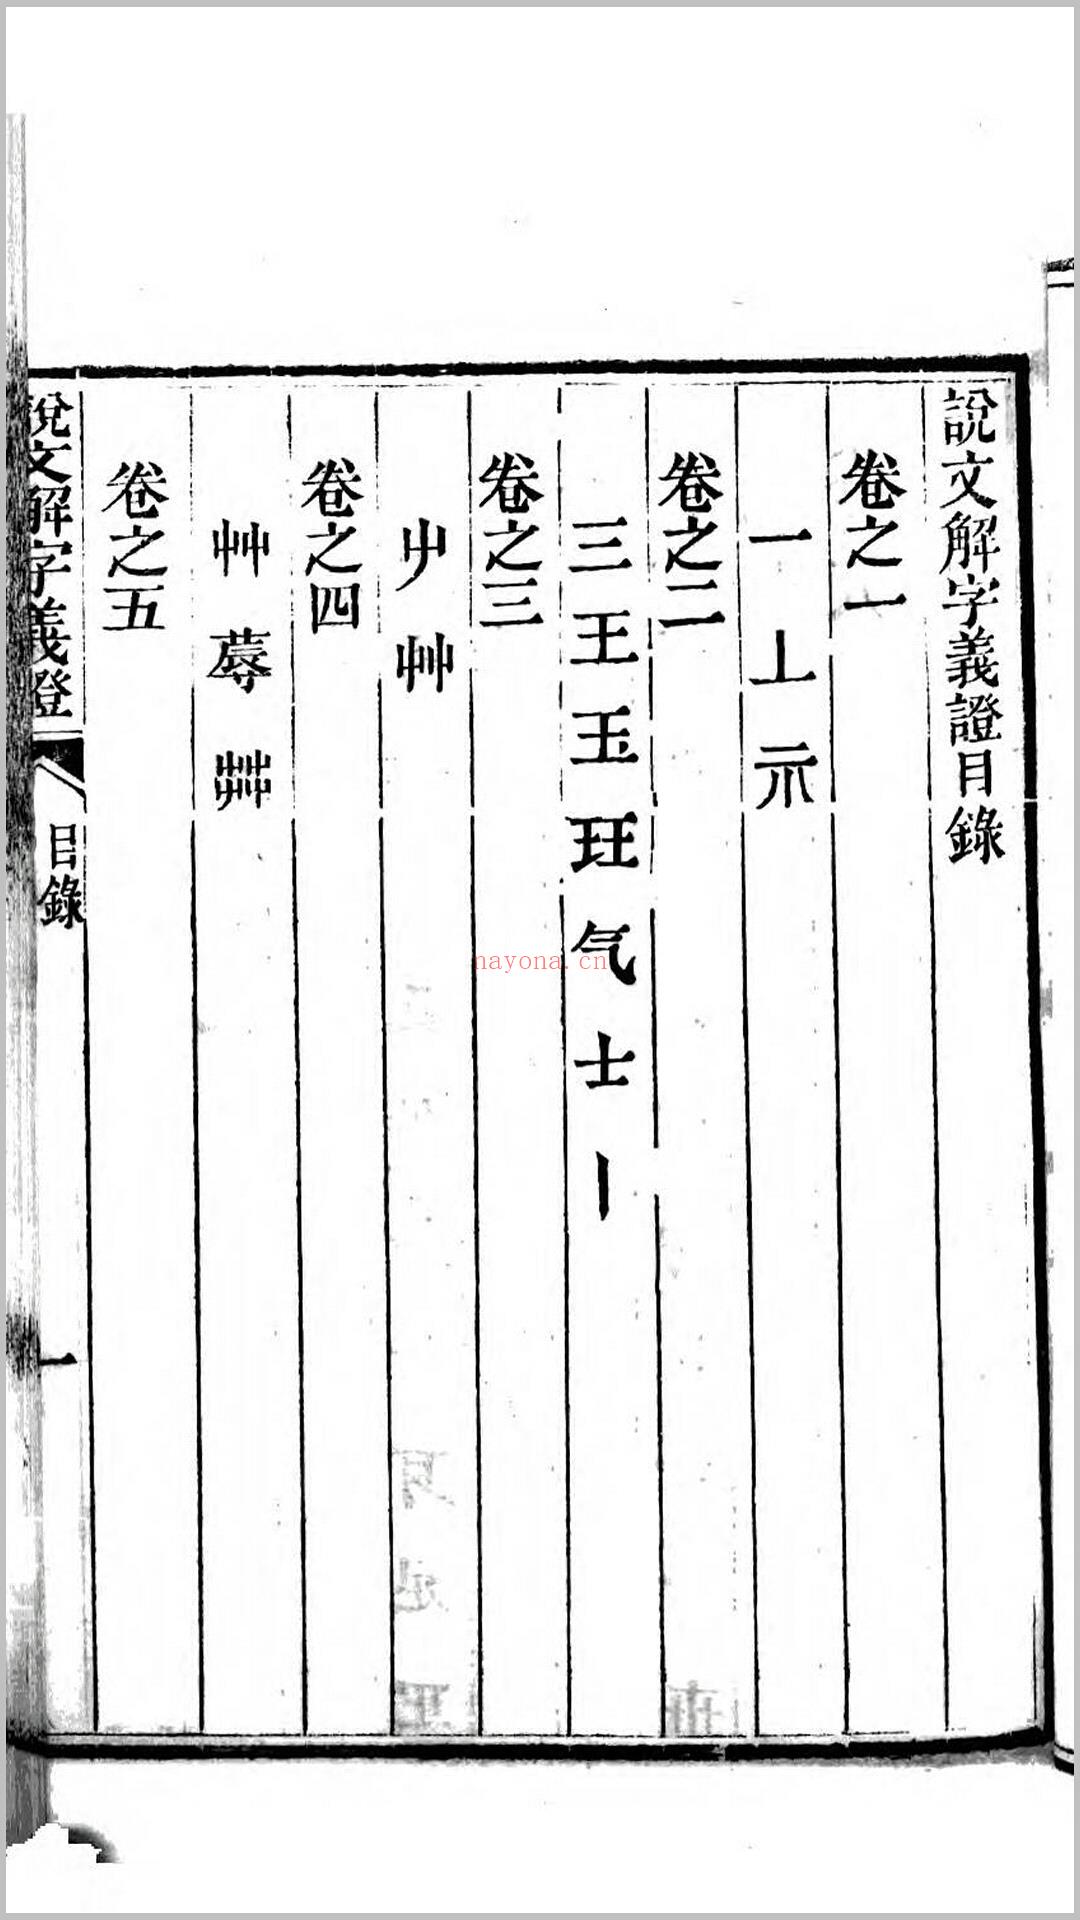 說文解字義證目錄
卷之一
一丄示
卷之二
三王玉玨气士丨
卷之三
屮艸
卷之四
艸蓐茻
卷之五
說文解字義證
目錄
一
nayona.cn